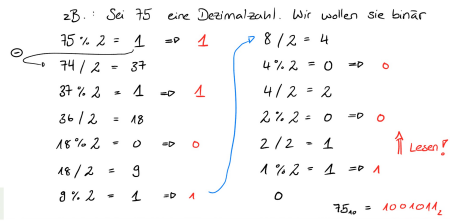 zB.: Sei 75 eine Dezimalzahl. Wir wollen sie binär
75 % 2 = 1 => 1
⊖
74 / 2 = 37
37 % 2 = 1 => 1
36 / 2 = 18
18 % 2 = 0 => 0
18 / 2 = 9
9 % 2 = 1 => 1
8 / 2 = 4
4 % 2 = 0 => 0
4 / 2 = 2
2 % 2 = 0 => 0
2 / 2 = 1
1 % 2 = 1 => 1
0
Lesen!
75₁₀ = 1001011₂